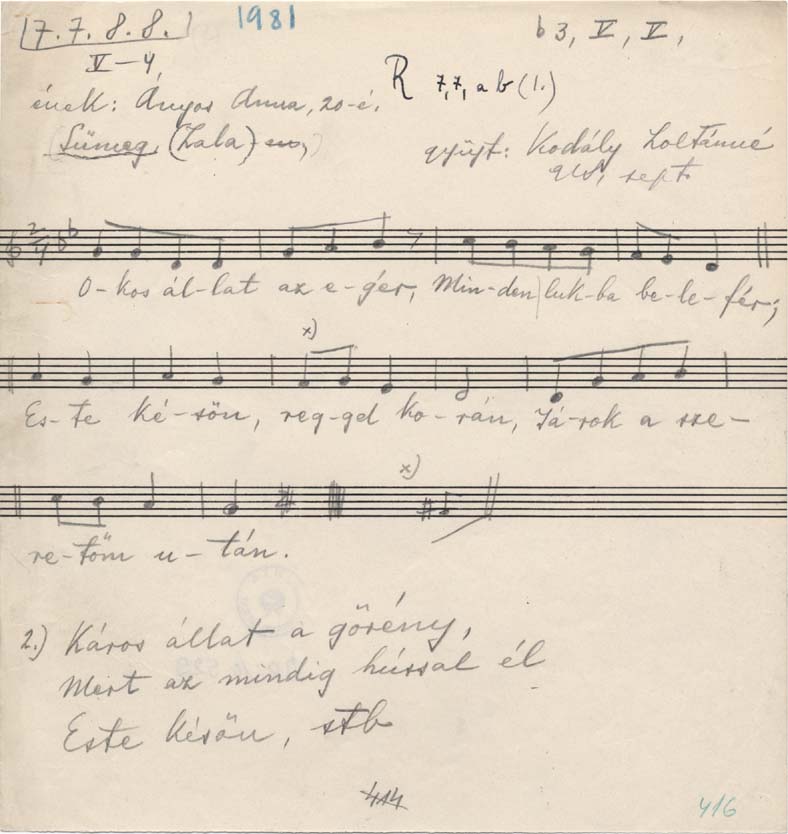 7. 7. 8. 8.
1981
b3, V, V,
V–4
R 7,7, a b (1.)
ének: Ányos Anna, 20-é.
(Sümeg, (Zala)
gyűjt: Kodály Zoltánné
sept.
2/4
O-kos ál-lat az e-gér, Min-den luk-ba be-le-fér;
x)
Es-te ké-sön, reg-gel ko-rán, Já-rok a sze-
x)
re-töm u-tán.
2.) Káros állat a görény,
Mert az mindig hússal él
Este késön, stb
414
416